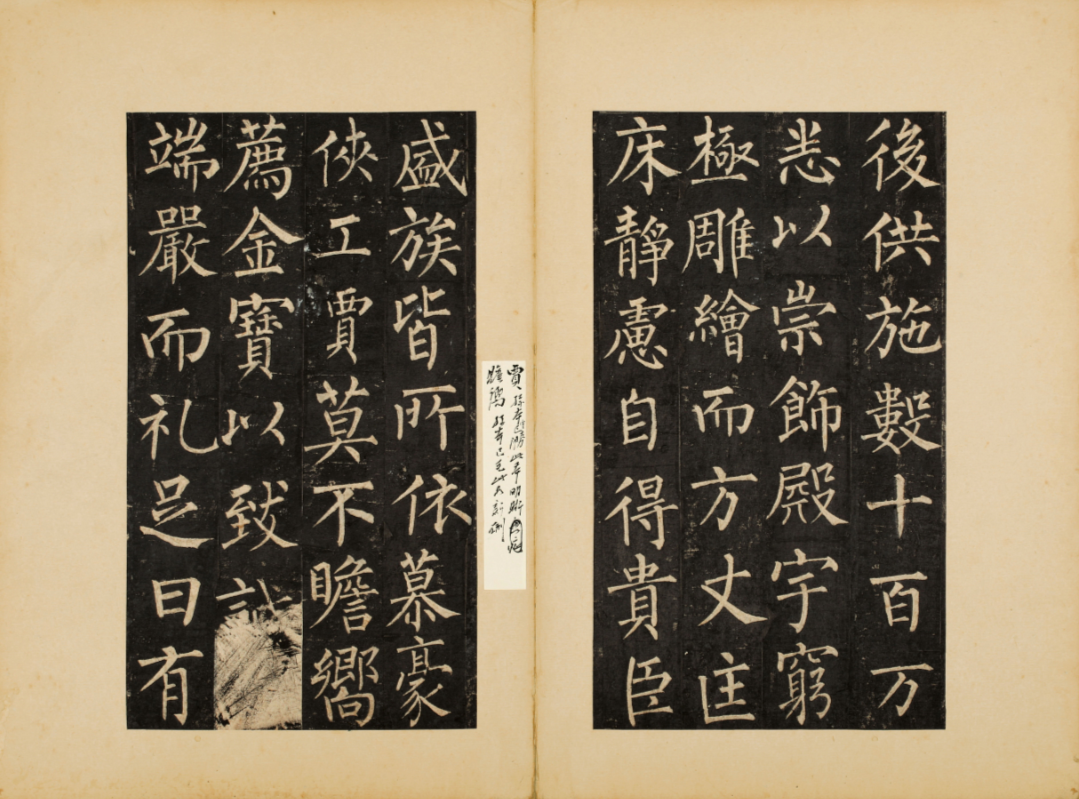 後供施數十百万
悉以崇飾殿宇窮
極雕繪而方丈匡
床靜慮自得貴臣
盛族皆所依慕豪
俠工賈莫不瞻嚮
薦金寶以致誠
端嚴而礼足日有
賈
瞻嚮